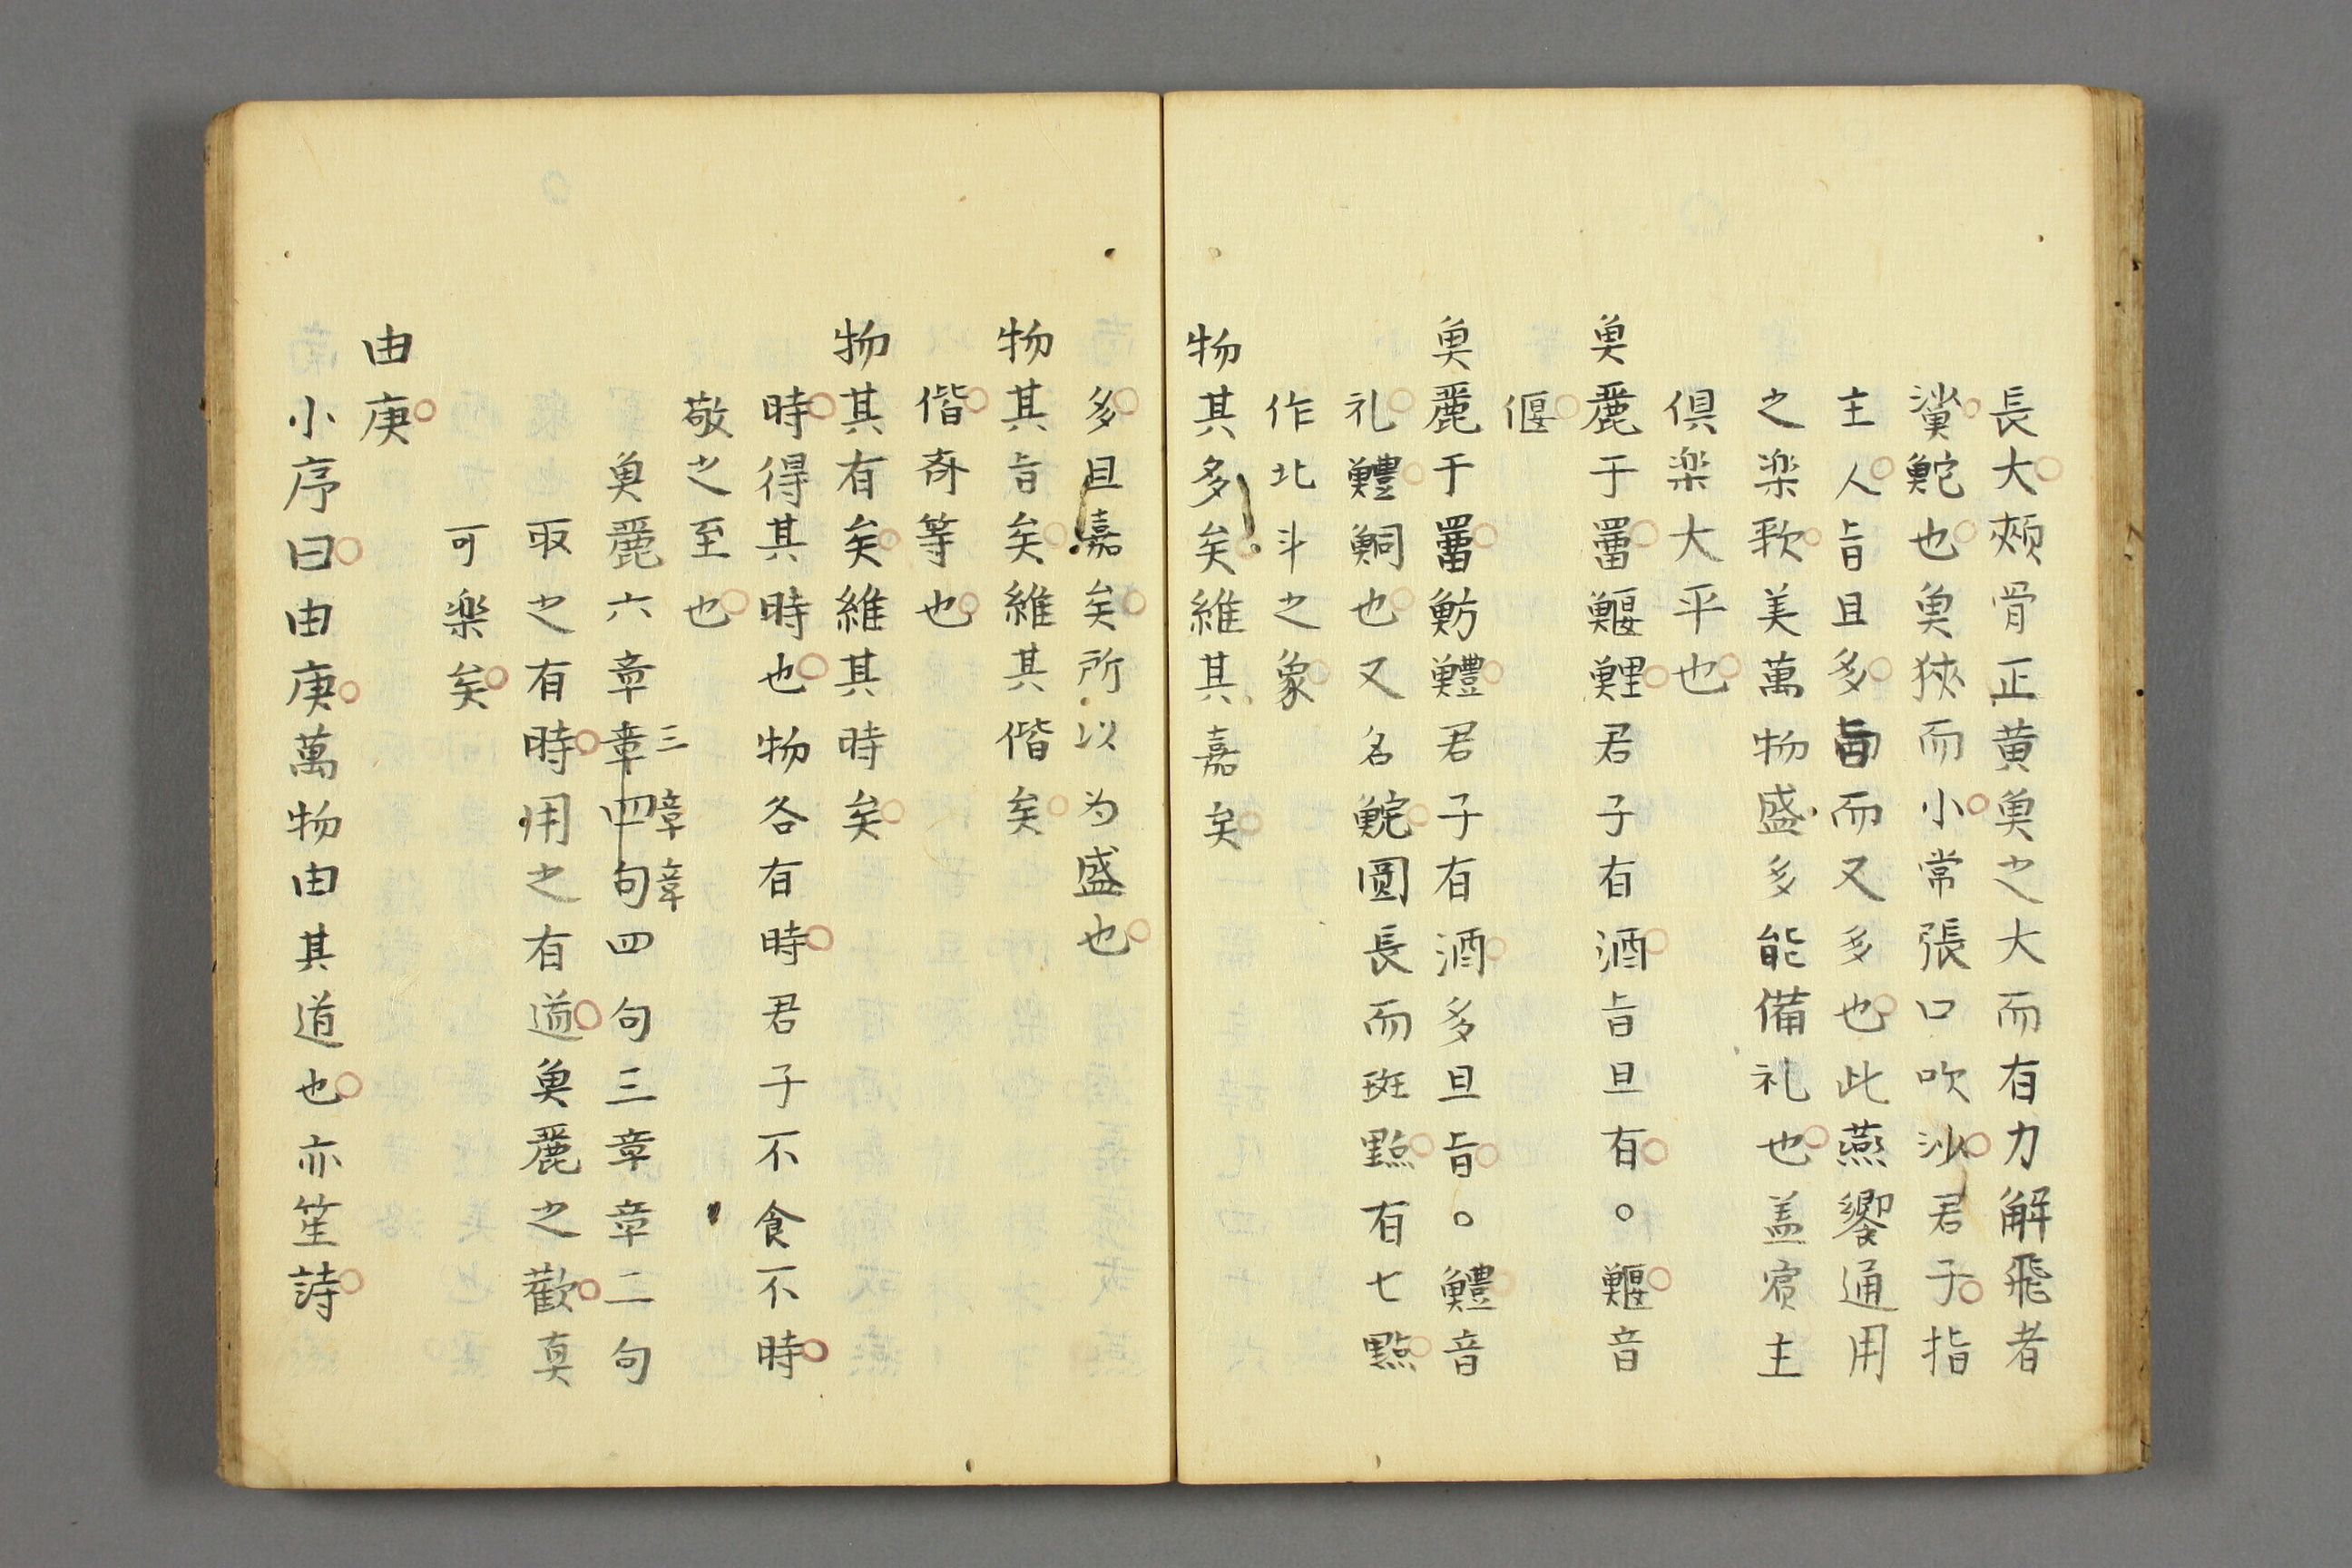 長大頰骨正黄魚之大而有力解飛者
鯊鮀也魚狹而小常張口吹沙君子指
主人旨且多旨而又多也此燕饗通用
之楽歌美萬物盛多能備礼也盖賔主
倶楽大平也
魚麗于罶鰋鯉君子有酒旨且有。鰋音
偃
魚麗于罶魴鱧君子有酒多且旨。鱧音
礼鱧鮦也又名鯇圓長而斑點有七點
作北斗之象
物其多矣維其嘉矣
多且嘉矣所以为盛也
物其旨矣維其偕矣
偕斉等也
物其有矣維其時矣
時得其時也物各有時君子不食不時
敬之至也
魚麗六章三章章四句四句三章章二句
取之有時用之有道魚麗之歡真
可楽矣
由庚
小序曰由庚萬物由其道也亦笙詩